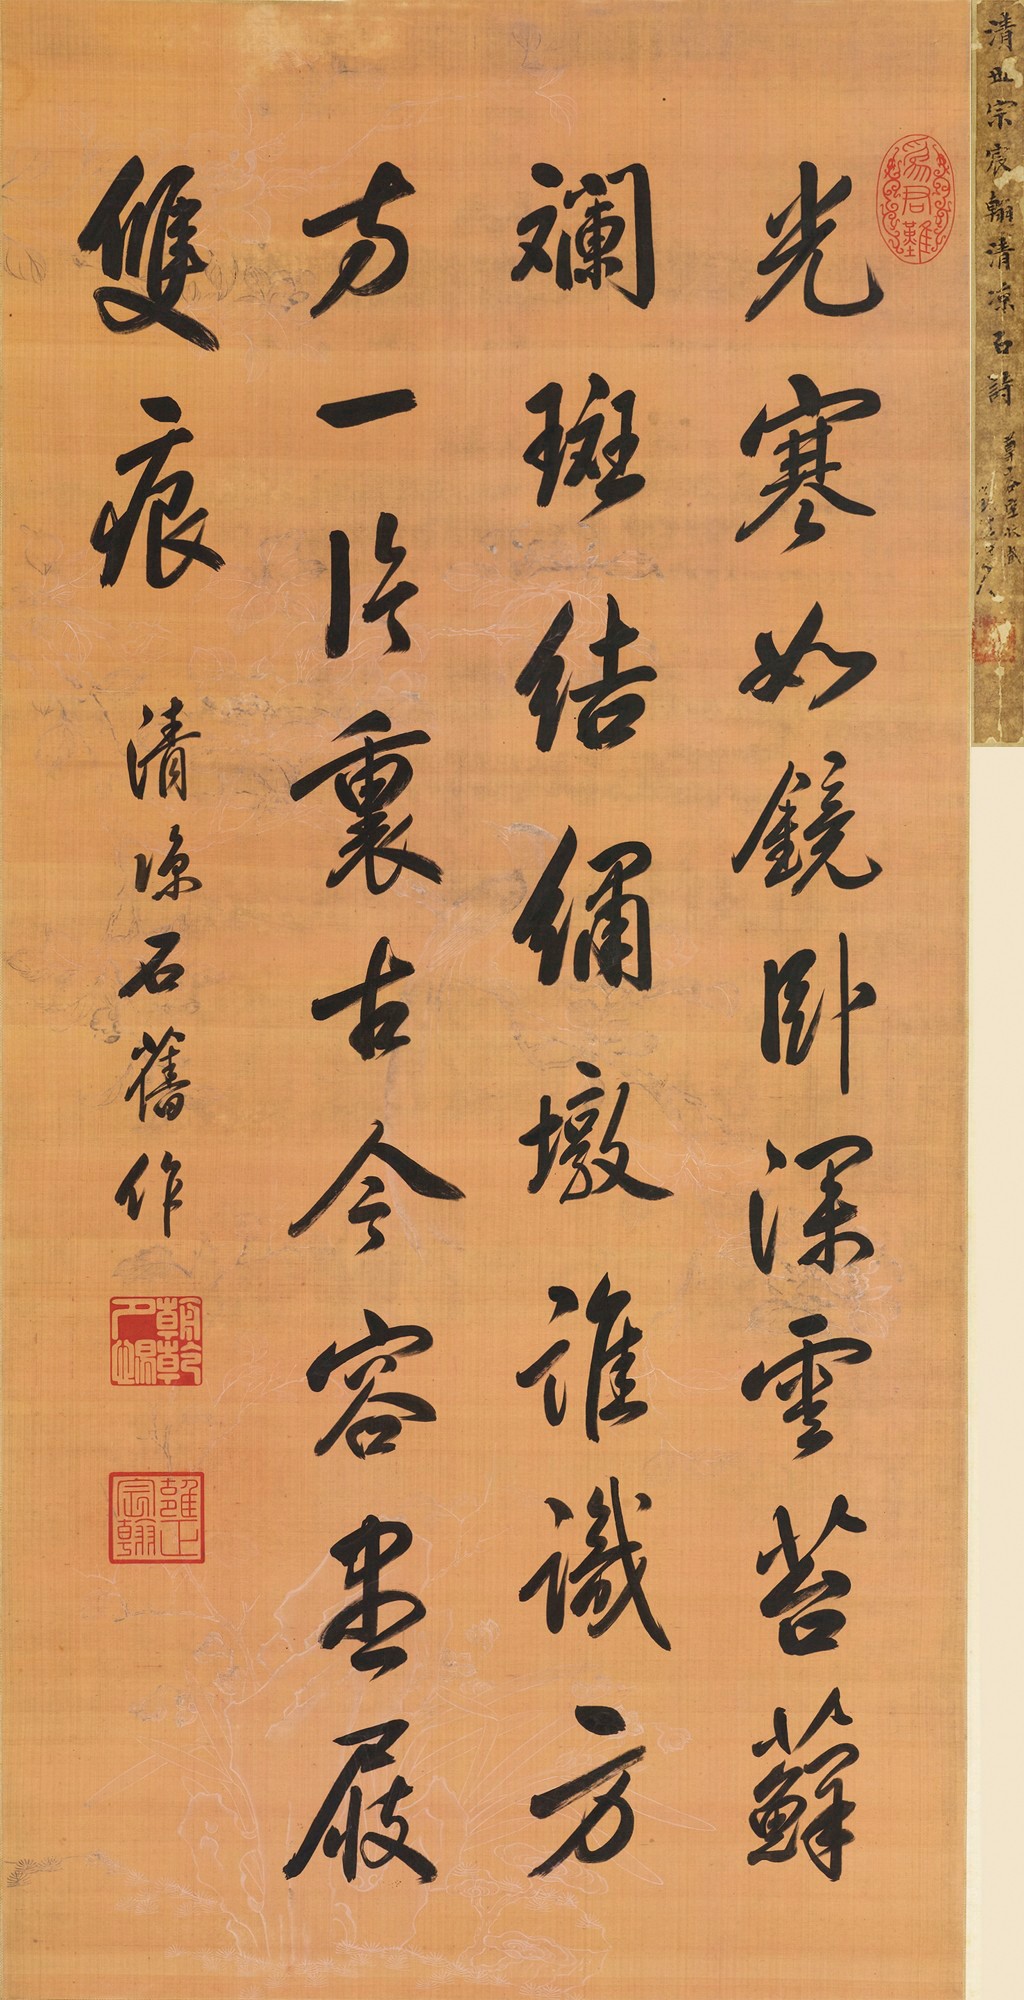 清世宗宸翰清涼石詩
為君難
光寒如鏡臥深雲苔蘚
斕斑結繡墩誰識方
方一裏古今容盡屐
雙痕
清涼石舊作
朝乾夕惕
雍正宸翰